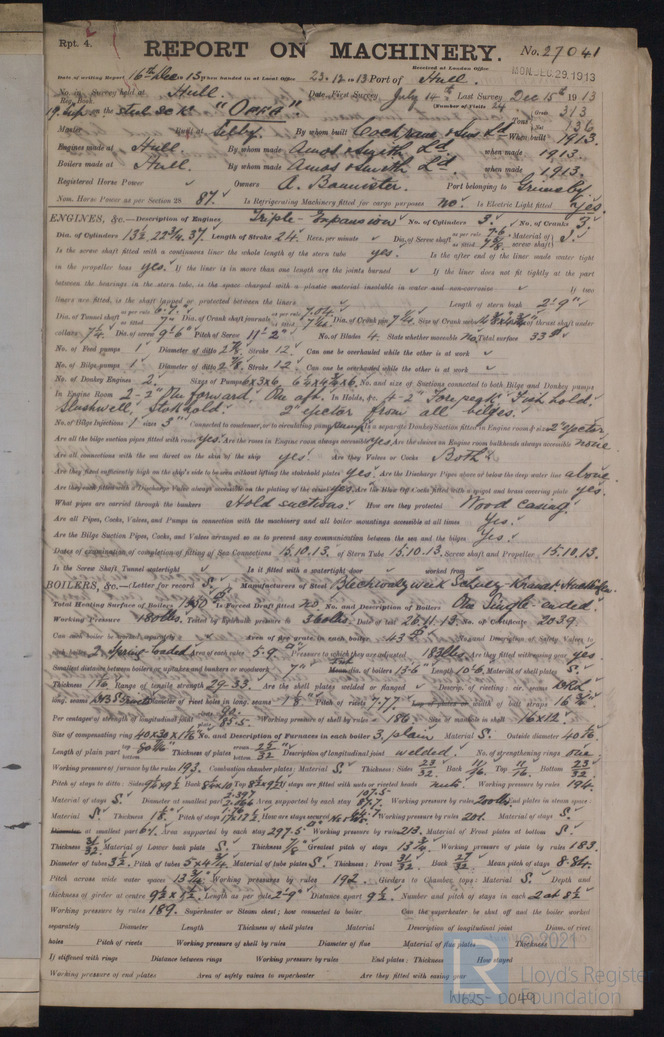 Rpt. 4.
REPORT ON MACHINERY.
No. 27041
Received at London Office
MON. DEC. 29. 1913
Date of writing Report 16th Dec 1913 When handed in at Local Office 23.12.13 Port of Hull.
No. in Survey held at Hull. Date, First Survey July 14th Last Survey Dec 15th 1913
Reg. Book.
(Number of Visits 24
on the "Offa". Gross 313
Tons Net 136
Master Built at Selby. By whom built Cochrane & Sons Ld When built 1913.
Engines made at Hull. By whom made Amos & Smith Ld. when made 1913.
Boilers made at Hull. By whom made Amos & Smith Ld. when made 1913.
Registered Horse Power Owners A. Bannister. Port belonging to Grimsby.
Nom. Horse Power as per Section 28 87. Is Refrigerating Machinery fitted for cargo purposes No. Is Electric Light fitted Yes.
ENGINES, &c.—Description of Engines Triple-Expansion No. of Cylinders 3. No. of Cranks 3.
Dia. of Cylinders 13½ 22¾ 37. Length of Stroke 24. Revs. per minute Dia. of Screw shaft Material of screw shaft
Is the screw shaft fitted with a continuous liner the whole length of the stern tube yes. Is the after end of the liner made water tight
in the propeller boss yes. If the liner is in more than one length are the joints burned If the liner does not fit tightly at the part
between the bearings in the stern tube, is the space charged with a plastic material insoluble in water and non-corrosive If two
liners are fitted, is the shaft lapped or protected between the liners Length of stern bush 2'-9"
Dia. of Tunnel shaft Dia. of Crank shaft journals Dia. of Crank pin 7¼ Size of Crank webs Dia. of thrust shaft under
collars 7¼. Dia. of screw 9'-6" Pitch of Screw 11'-2" No. of Blades 4. State whether moveable No. Total surface 33
No. of Feed pumps 1 Diameter of ditto 2⅞. Stroke 12. Can one be overhauled while the other is at work
No. of Bilge pumps 1 Diameter of ditto 2⅞. Stroke 12. Can one be overhauled while the other is at work
No. of Donkey Engines 2. Sizes of Pumps No. and size of Suctions connected to both Bilge and Donkey pumps
In Engine Room 2-2" One forward. One aft. In Holds, &c. 4-2" Forepeak. Fish hold.
Slushwell, Stokehold. 2" ejector from all bilges.
No. of Bilge Injections 1 sizes 3" Connected to condenser, or to circulating pump Is a separate Donkey Suction fitted in Engine room & size 2" ejector
Are all the bilge suction pipes fitted with roses yes. Are the roses in Engine room always accessible yes. Are the sluices on Engine room bulkheads always accessible none
Are all connections with the sea direct on the skin of the ship yes. Are they Valves or Cocks Both.
Are they fixed sufficiently high on the ship's side to be seen without lifting the stokehold plates yes. Are the Discharge Pipes above or below the deep water line above.
Are they each fitted with a Discharge Valve always accessible on the plating of the vessel yes. Are the Blow Off Cocks fitted with a spigot and brass covering plate yes.
What pipes are carried through the bunkers Hold suctions. How are they protected Wood casing.
Are all Pipes, Cocks, Valves, and Pumps in connection with the machinery and all boiler mountings accessible at all times Yes.
Are the Bilge Suction Pipes, Cocks, and Valves arranged so as to prevent any communication between the sea and the bilges Yes.
Dates of examination of completion of fitting of Sea Connections 15.10.13. of Stern Tube 15.10.13. Screw shaft and Propeller 15.10.13.
Is the Screw Shaft Tunnel watertight Is it fitted with a watertight door worked from
BOILERS, &c.—(Letter for record S.) Manufacturers of Steel
Total Heating Surface of Boilers Is Forced Draft fitted No. No. and Description of Boilers One Single-ended.
Working Pressure 180lbs. Tested by hydraulic pressure to 360lbs. Date of test 26.11.13. No. of Certificate 2039.
Can each boiler be worked separately Area of fire grate in each boiler 43 No. and Description of Safety Valves to
each boiler 2 Spring loaded. Area of each valve 5.9 Pressure to which they are adjusted 183lbs. Are they fitted with easing gear yes
Smallest distance between boilers or uptakes and bunkers or woodwork 7" dia. of boilers 13'-6" Length 10'-6. Material of shell plates S.
Thickness Range of tensile strength 29-33. Are the shell plates welded or flanged Descrip. of riveting: cir. seams
long. seams Diameter of rivet holes in long. seams Pitch of rivets 7.77 width of butt straps 16
Per centages of strength of longitudinal joint plate 85.5 Working pressure of shell by rules 186. Size of manhole in shell 16x12
Size of compensating ring No. and Description of Furnaces in each boiler 3, plain Material S. Outside diameter 40
Length of plain part Thickness of plates Description of longitudinal joint welded. No. of strengthening rings One
Working pressure of furnace by the rules 193. Combustion chamber plates: Material S. Thickness: Sides 23/32 Back 11/16 Top 11/16 Bottom 23/32
Pitch of stays to ditto: Sides Back Top If stays are fitted with nuts or riveted heads nuts. Working pressure by rules 194.
Material of stays S. Diameter at smallest part Area supported by each stay Working pressure by rules End plates in steam space:
Material S. Thickness Pitch of stays How are stays secured Working pressure by rules 201. Material of stays S.
at smallest part Area supported by each stay 297.5 Working pressure by rules 213. Material of Front plates at bottom S.
Thickness 31/32 Material of Lower back plate S. Thickness Greatest pitch of stays 13¾ Working pressure of plate by rules 183.
Diameter of tubes 3½. Pitch of tubes Material of tube plates S. Thickness: Front 31/32 Back 27/32 Mean pitch of stays
Pitch across wide water spaces Working pressures by rules 192. Girders to Chamber tops: Material S. Depth and
thickness of girder at centre Length as per rule 2'-9" Distance apart 9½. Number and pitch of stays in each 2 at 8½
Working pressure by rules 189. Superheater or Steam chest; how connected to boiler Can the superheater be shut off and the boiler worked
separately Diameter Length Thickness of shell plates Material Description of longitudinal joint Diam. of rivet
holes Pitch of rivets Working pressure of shell by rules Diameter of flue Material of flue plates Thickness
If stiffened with rings Distance between rings Working pressure by rules End plates: Thickness How stayed
Working pressure of end plates Area of safety valves to superheater Are they fitted with easing gear
© 2021
Lloyd's Register
Foundation
W625-0049